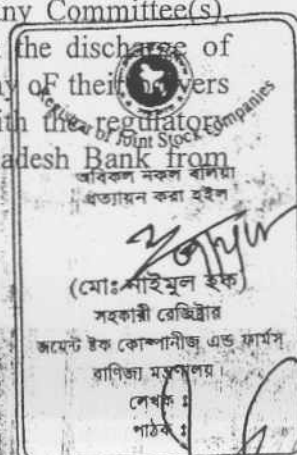 ny Committee(s),
the discharge of
y oF their
ith the regulatory
adesh Bank from
Registrar of Joint Stock Companies
অবিকল নকল বলিয়া
প্রত্যায়ন করা হইল
(মোঃ নাইমুল হক)
সহকারী রেজিষ্ট্রার
জয়েন্ট ষ্টক কোম্পানীজ এন্ড ফার্মস
বাণিজ্য মন্ত্রণালয়।
লেখক ঃ
পাঠক ঃ